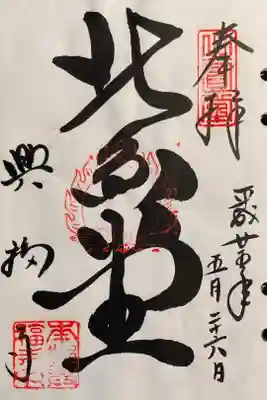 奉拝
平成廿五年
五月二十六日
北円堂
興福寺